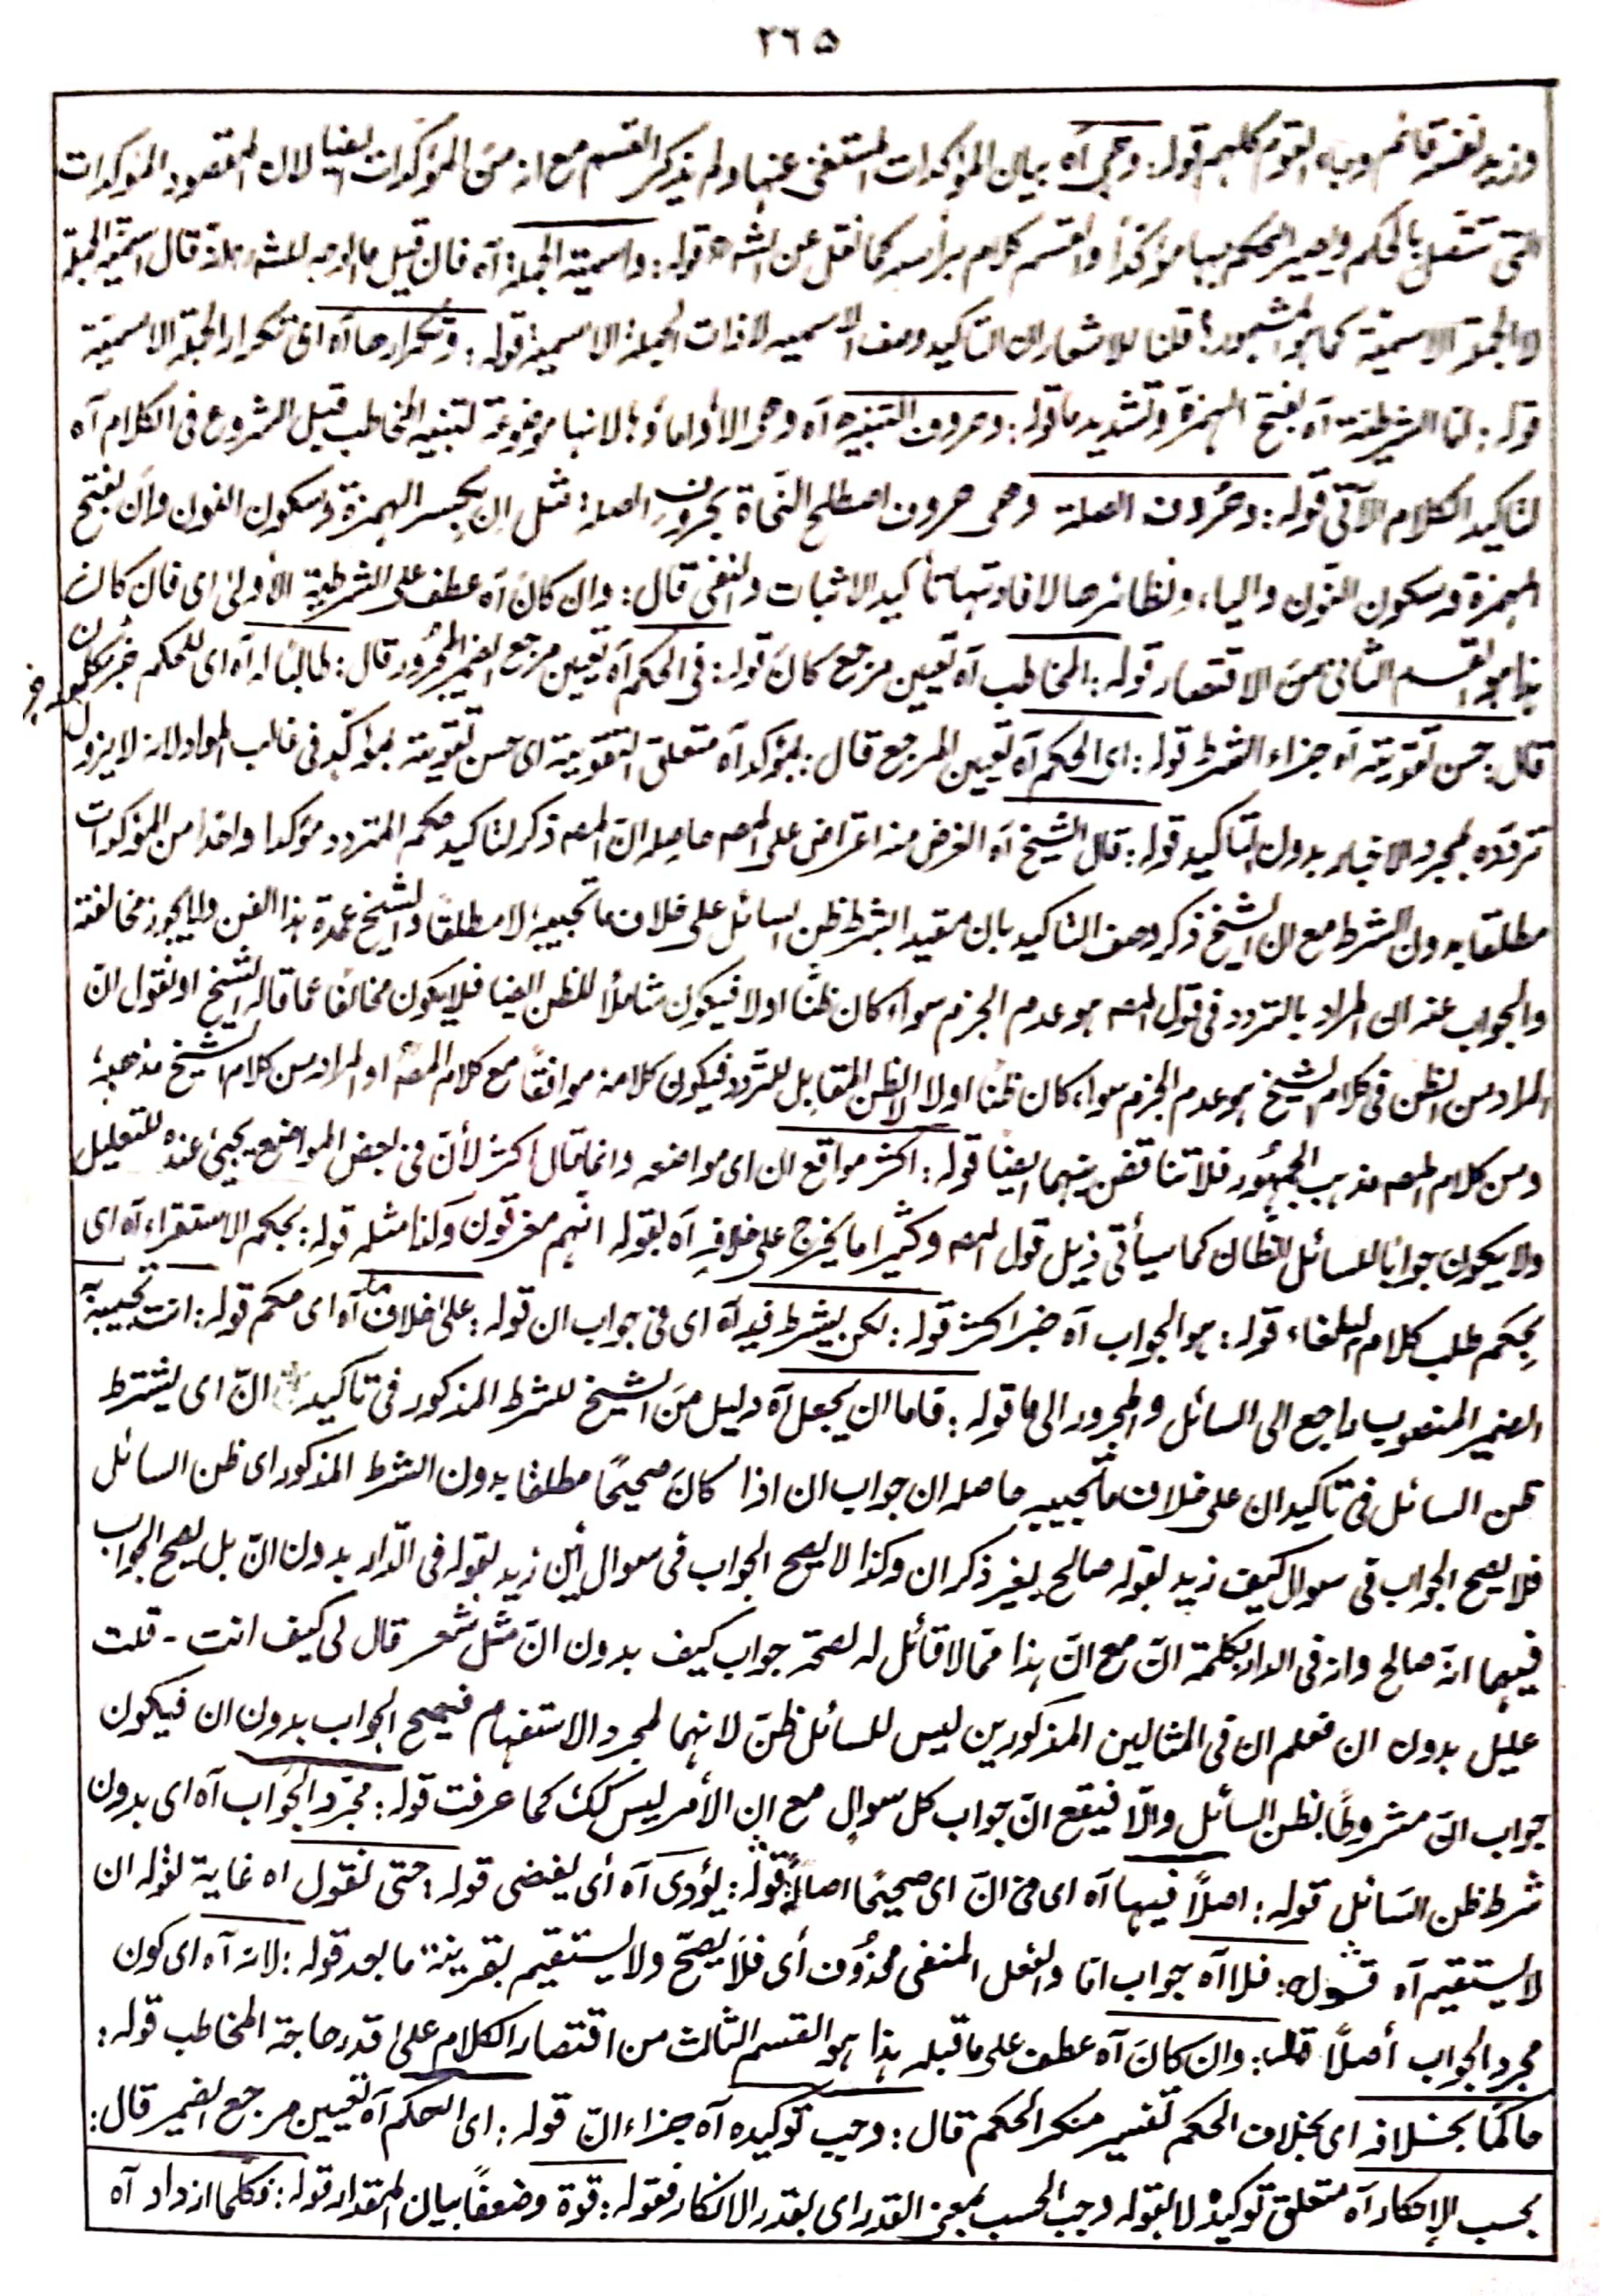 ٢٦٥
وزيد نفسه قائم وجاء القوم كلهم قوله: وهى آه بيان المؤكدات المستغنى عنها ولم يذكر القسم مع انه من المؤكدات ايضا لان المقصود المؤكدات
التى تتصل بالحكم ويصير الحكم بها مؤكدًا والقسم كلام برأسه كما نقل عن الشه قوله: واسمية الجملة آه فان قيل ما الوجه للشه انه قال اسمية الجملة
لا الجملة الاسمية كما هو المشهور؛ قلنا للاشعار ان التاكيد وصف الاسميه لا ذات الجملة الاسمية قوله: وتكرارها آه اى تكرار الجملة الاسمية
قوله: اما الشرطية آه بفتح الهمزة وتشديد ما قوله: وحروف التنبيه آه وهى الا وأما وها لانها موضوعة لتنبيه المخاطب قبل الشروع فى الكلام آه
لتاكيد الكلام الآتى قوله: وحروف الصلة وهى حروف اصطلح النحاة بحروف الصلة مثل ان بكسر الهمزة وسكون النون وأن بفتح
الهمزة وسكون النون والباء ونظائرها لافادتها تأكيد الاثبات والنفى قال: وان كان آه عطف على الشرطية الأولى اى فان كان
هذا هو القسم الثانى من الاقتصار قوله: المخاطب آه تعيين مرجع كان قوله: فى الحكم آه تعيين مرجع الضمير المجرور قال: طالبا له آه اى للحكم خبر
قال: حسن تقويته آه جزاء الشرط قوله: اى الحكم آه تعيين المرجع قال: بمؤكد آه متعلق التقوية اى حسن تقويته بمؤكد فى غالب المواد لانه لا يزول
تردده بمجرد الاخبار بدون التاكيد قوله: قال الشيخ آه الغرض منه اعتراض على المصه حاصله انّ المصه ذكر لتاكيد حكم المتردد مؤكدا واحدا من المؤكدات
مطلقا بدون الشرط مع ان الشيخ ذكر وصف التاكيد بان مقيد الشرط ظن السائل على خلاف ما تجيبه لا مطلقًا والشيخ عمدة هذا الفن ولا يجوز مخالفته
والجواب عنه ان المراد بالتردد فى قول المصه هو عدم الجزم سواء كان ظنًا اولا فيكون شاملًا للظن ايضا فلا يكون مخالفا عما قاله الشيخ او نقول انّ
المراد من الظن فى كلام الشيخ هو عدم الجزم سواء كان ظنًا اولا لا الظن المقابل للتردد فيكون كلامه موافقًا مع كلام المصه او المراد من كلام الشيخ مذهبه؛
ومن كلام المصه مذهب الجمهور فلا تناقض بينهما ايضا قوله: اكثر مواقع ان اى مواضعه وانما قال اكثر لأنّ فى بعض المواضع يجئ عنده للتعليل
ولا يكون جوابًا للسائل للظان كما سيأتى ذيل قول المصه وكثيرا ما يخرج على خلافه آه بقوله انهم مغرقون وكذا مثله قوله: بحكم الاستقراء آه اى
بحكم طلب كلام البلغاء قوله: هو الجواب آه خبر اكثر قوله: لكن يشترط فيه آه اى فى جواب ان قوله: على خلاف ما آه اى حكم قوله: انت تجيبه آه
الضمير المنصوب راجع الى السائل والمجرور الى ما قوله: فاما ان يجعل آه دليل من الشيخ للشرط المذكور فى تاكيد انّ اى يشترط
ظن السائل فى تاكيد ان على خلاف ما تجيبه حاصله ان جواب ان اذا كان صحيحًا مطلقًا بدون الشرط المذكور اى ظن السائل
فلا يصح الجواب فى سوال كيف زيد بقوله صالح بغير ذكر ان وكذا لا يصح الجواب فى سوال أين زيد بقوله فى الدّار بدون انّ بل يصح الجواب
فيهما انه صالح وانه فى الدار بكلمة انّ مع انّ هذا ممّا لا قائل له لصحّة جواب كيف بدون انّ مثل شعر قال لى كيف انت ۔ قلت
عليل بدون ان فعلم ان فى المثالين المذكورين ليس للسائل ظنّ لانهما لمجرد الاستفهام فيصح الجواب بدون ان فيكون
جواب انّ مشروطًا بظن السائل والّا فيقع انّ جواب كل سوال مع ان الأمر ليس كك كما عرفت قوله: مجرّد الجواب آه اى بدون
شرط ظن السائل قوله: اصلًا فيها آه اى فى انّ اى صحيحًا اصالةً قوله: يؤدى آه أى يفضى قوله: حتى نقول اه غاية لقوله ان
لا يستقيم آه قوله: فلا آه جواب امّا والفعل المنفى محذوف أى فلا يصحّ ولا يستقيم بقرينة ما بعد قوله: لانه آه اى كون
مجرد الجواب أصلًا قال: وان كان آه عطف على ما قبله هذا هو القسم الثالث من اقتصار الكلام على قدر حاجة المخاطب قوله:
حاكمًا بخلافه اى بخلاف الحكم تفسير منكر الحكم قال: وجب توكيده آه جزاء انّ قوله: اى الحكم آه تعيين مرجع الضمير قال:
بحسب الإنكار آه متعلق توكيده لا بقوله وجب الحسب بمعنى القدر اى بقدر الانكار فقوله: قوة وضعفًا بيان المقدار قوله: فكلما ازداد آه